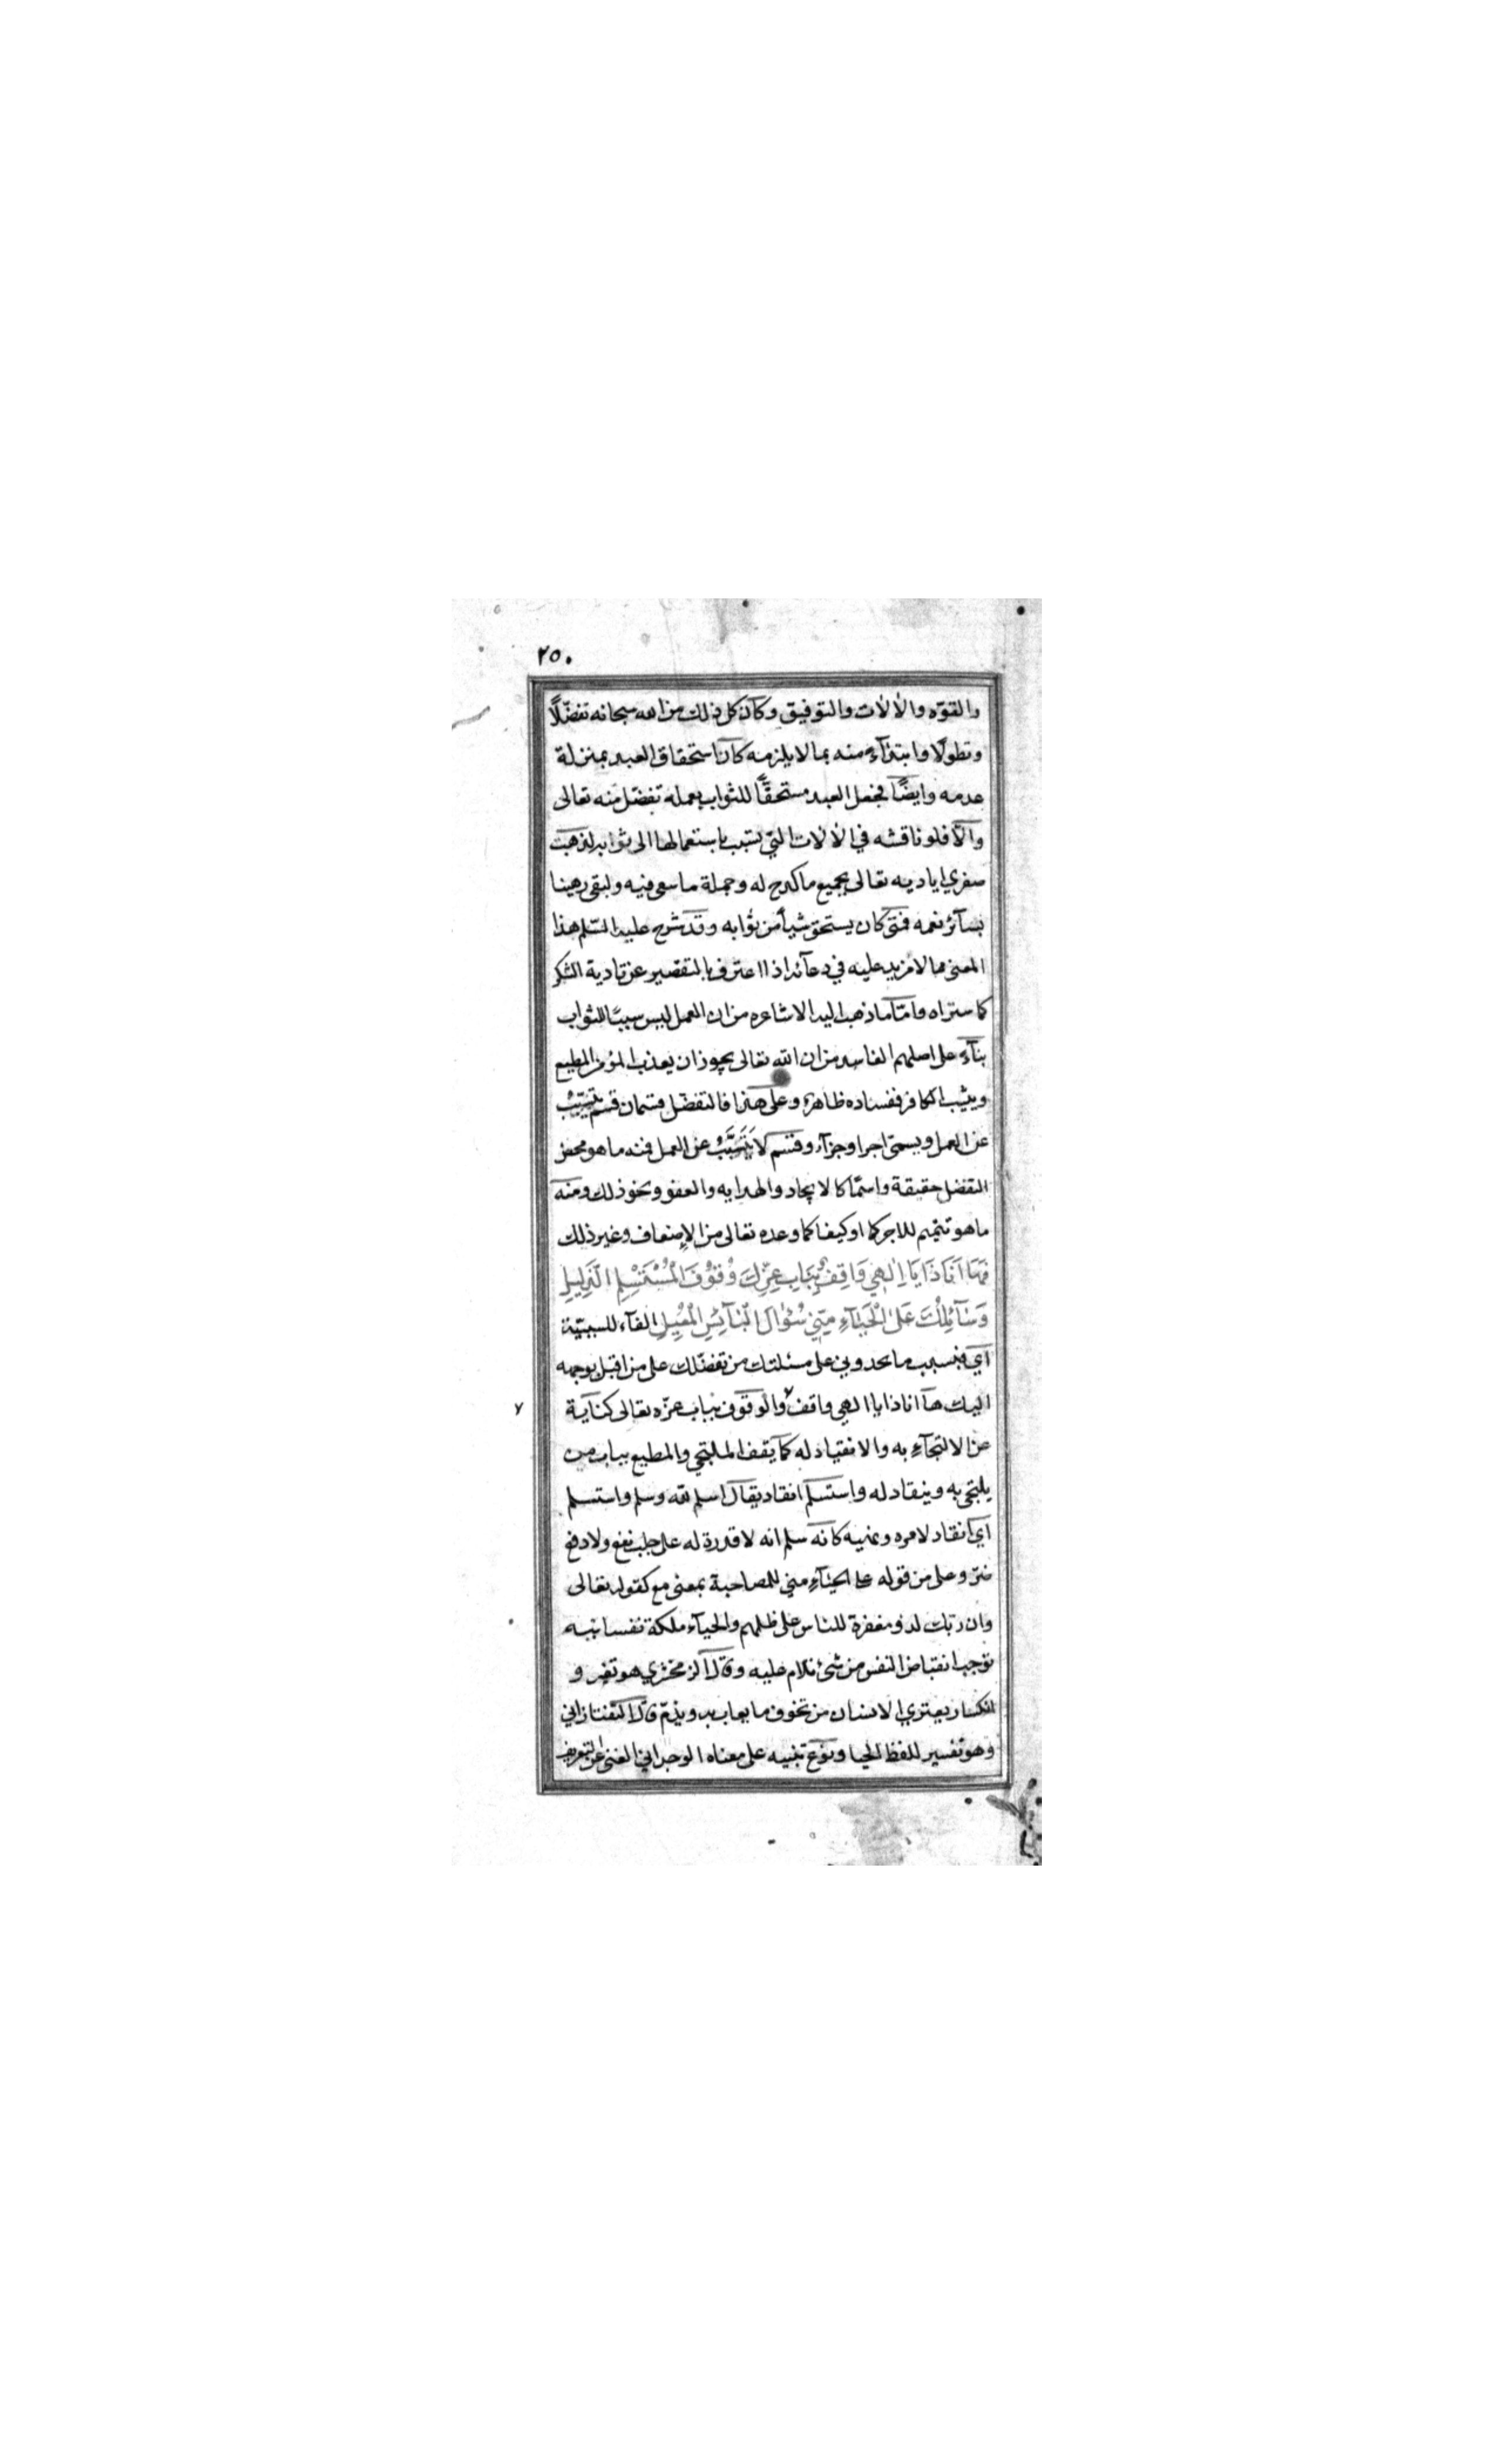 ٢٥٠
والقوّه والألات والتوفيق وكان كل ذلك من الله سبحانه تفضّلاً
وتطولا وابتداءً منه بما لا يلزمه كان استحقاق العبد بمنزلة
عدمه وايضاً فجعل العبد مستحقّاً للثواب بعمله تفضّل منه تعالى
والّا فلو ناقشه في الألات التي تسبب باستعمالها الى ثوابه لذهبت
صغرى اياديه تعالى بجميع ما كدح له وجملة ما سعى فيه ولبقى رهينا
بسائر نعمه فمتى كان يستحق شيأ من ثوابه وقد شرح عليه السّلم هذا
المعنى بما لا مزيد عليه في دعائه اذا اعترف بالتقصير عن تادية الشكر
كما ستراه وامّا ما ذهب اليه الاشاعره من ان العمل ليس سببًا للثواب
بناءً على اصلهم الفاسد من ان الله تعالى يجوز ان يعذب المؤمن المطيع
ويثيب الكافر ففساده ظاهر وعلى هذا فالتفضّل قسمان قسم يتسبّب
عن العمل ويسمّى اجرا وجزآء وقسم لا يَتَسَبَّبُ عن العمل فمنه ما هو محض
التفضل حقيقة واسمًا كالايجاد والهدايه والعفو ونحو ذلك ومنه
ما هو تتميم للاجر كما او كيفا كما وعده تعالى من الإضعاف وغير ذلك
فَهَا اَنَا ذَا يَا اِلٰهِي وَاقِفٌ بِبَابِ عِزِّكَ وُقُوْفَ الْمُسْتَسْلِمِ الذَّلِيلِ
وَسَآئِلُكَ عَلَى الْحَيَآءِ مِنّيِ سُؤَالَ الْبَآئِسِ الْمُعِيْلِ الفآء للسببيّة
اي فبسبب ما يحدوني على مسئلتك من تفضّلك على من اقبل بوجهه
اليك ها انا ذا يا الهي واقف والوقوف بباب عزّه تعالى كناية
٧
عن الالتجآءِ به والانقياد له كما يقف الملتجي والمطيع بباب من
يلتجي به وينقاد له واستسلم انقاد يقال اسلم لله وسلم واستسلم
اي انقاد لامره ونهيه كانه سلم انه لا قدرة له على جلب نفع ولا دفع
ضرّ وعلى من قوله على الحيآءِ مني للمصاحبة بمعنى مع كقوله تعالى
وان ربّك لذو مغفرة للناس على ظلمهم والحيآء ملكة نفسانيه
توجب انقباض النفس من شئ تلام عليه وقال الزمخشري هو تغير و
انكسار يعتري الانسان من تخوف ما يعاب به ويذمّ قال التفتازاني
وهو تفسير للفظ الحيا ونوع تنبيه على معناه الوجداني الغني عن التعريف